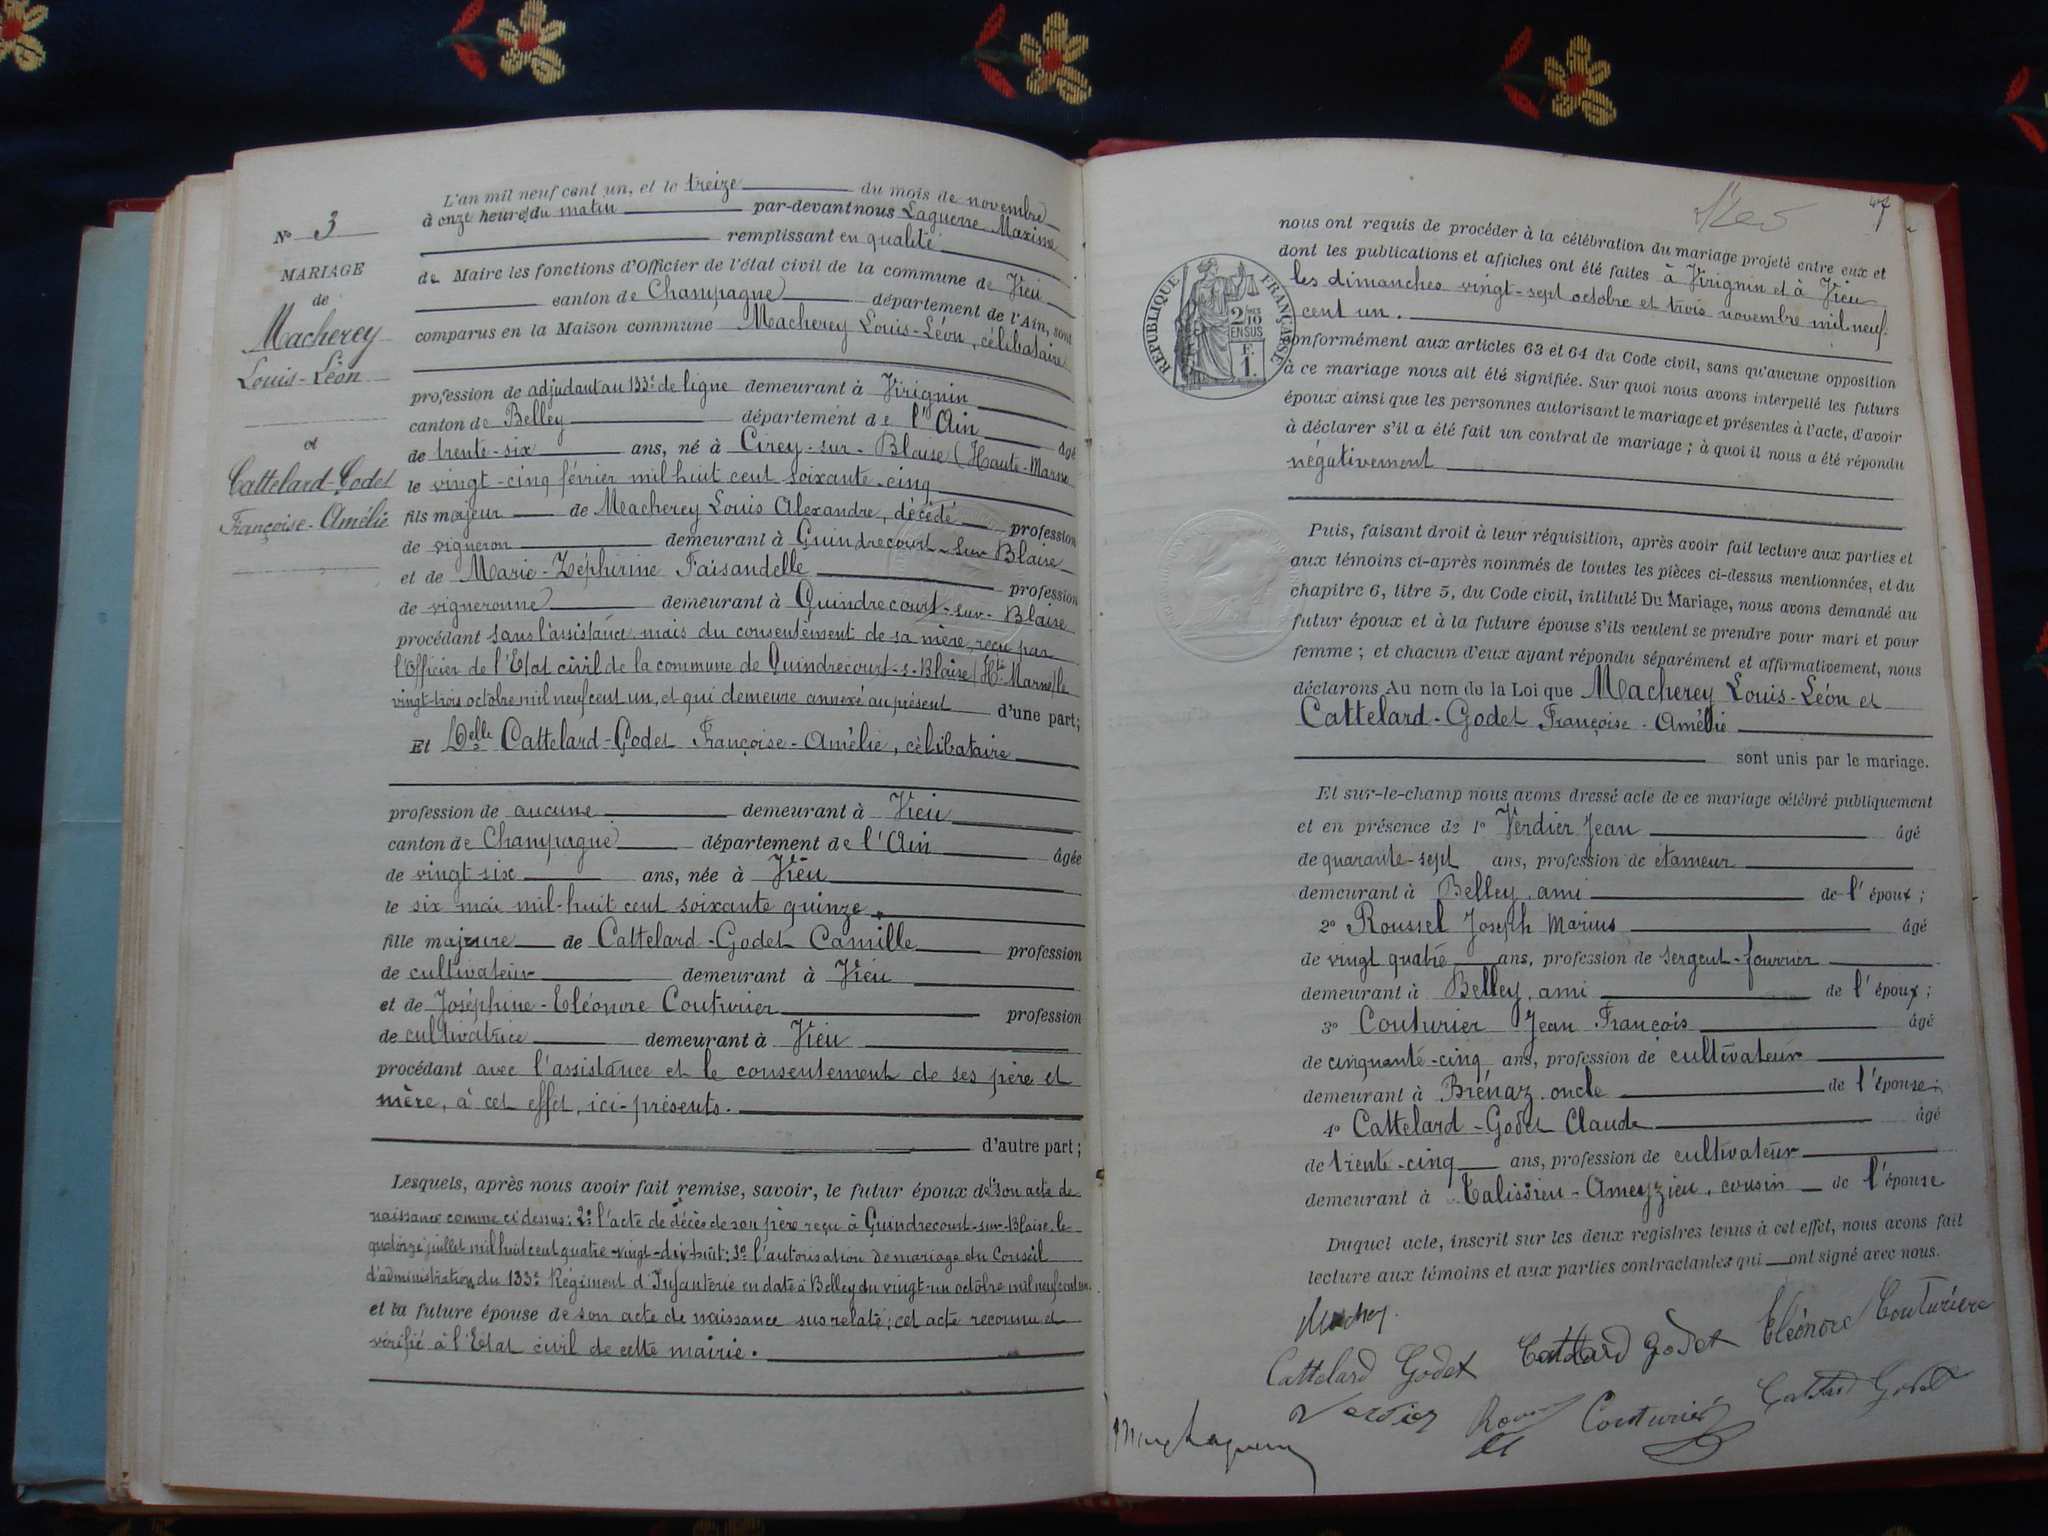 N° 3
MARIAGE
de
Macherey
Louis-Léon
et
Cattelard-Godet
Françoise-Amélie
L'an mil neuf cent un, et le treize du mois de novembre
à onze heures du matin par-devant nous Laguerre Maxime
remplissant en qualité
de Maire les fonctions d'Officier de l'état civil de la commune de Vieu
canton de Champagne département de l'Ain, sont
comparus en la Maison commune Macherey Louis-Léon, célibataire
profession de adjudant au 133e de ligne demeurant à Virignin
canton de Belley département de l'Ain âgé
de trente-six ans, né à Cirey-sur-Blaise (Haute-Marne
le vingt-cinq février mil huit cent soixante-cinq
fils majeur de Macherey Louis Alexandre, décédé profession
de vigneron demeurant à Guindrecourt-sur-Blaise
et de Marie-Zéphirine Faisandelle profession
de vigneronne demeurant à Guindrecourt-sur-Blaise
procédant sans l'assistance mais du consentement de sa mère, reçu par
l'Officier de l'Etat civil de la commune de Guindrecourt-s-Blaise (Hte Marne) le
vingt-trois octobre mil neuf cent un, et qui demeure annexé au présent d'une part;
Et Delle Cattelard-Godet Françoise-Amélie, célibataire
profession de aucune demeurant à Vieu
canton de Champagne département de l'Ain âgée
de vingt six ans, née à Vieu
le six mai mil-huit cent soixante quinze
fille majeure de Cattelard-Godet Camille profession
de cultivateur demeurant à Vieu
et de Joséphine-Eléonore Couturier profession
de cultivatrice demeurant à Vieu
procédant avec l'assistance et le consentement de ses père et
mère, à cet effet, ici-présents.
d'autre part;
Lesquels, après nous avoir fait remise, savoir, le futur époux de son acte de
naissance comme ci dessus; 2° l'acte de décès de son père reçu à Guindrecourt-sur-Blaise, le
quatorze juillet mil huit cent quatre-vingt-dix-huit; 3° l'autorisation de mariage du Conseil
d'administration du 133e Régiment d'Infanterie en date à Belley du vingt-un octobre mil neuf cent un.
et la future épouse de son acte de naissance sus relaté; cet acte reconnu et
vérifié à l'Etat civil de cette mairie.
47
nous ont requis de procéder à la célébration du mariage projeté entre eux et
dont les publications et affiches ont été faites à Virignin et à Vieu
les dimanches vingt-sept octobre et trois novembre mil neuf
cent un.
RÉPUBLIQUE FRANÇAISE
2/10
EN SUS
F.
1.
conformément aux articles 63 et 64 du Code civil, sans qu'aucune opposition
à ce mariage nous ait été signifiée. Sur quoi nous avons interpellé les futurs
époux ainsi que les personnes autorisant le mariage et présentes à l'acte, d'avoir
à déclarer s'il a été fait un contrat de mariage; à quoi il nous a été répondu
négativement
Puis, faisant droit à leur réquisition, après avoir fait lecture aux parties et
aux témoins ci-après nommés de toutes les pièces ci-dessus mentionnées, et du
chapitre 6, titre 5, du Code civil, intitulé Du Mariage, nous avons demandé au
futur époux et à la future épouse s'ils veulent se prendre pour mari et pour
femme; et chacun d'eux ayant répondu séparément et affirmativement, nous
déclarons Au nom de la Loi que Macherey Louis-Léon et
Cattelard-Godet Françoise-Amélie
sont unis par le mariage.
Et sur-le-champ nous avons dressé acte de ce mariage célébré publiquement
et en présence de 1° Verdier Jean âgé
de quarante-sept ans, profession de étameur
demeurant à Belley, ami de l'époux;
2° Roussel Joseph Marius âgé
de vingt quatre ans, profession de sergent-fourrier
demeurant à Belley, ami de l'époux;
3° Couturier Jean François âgé
de cinquante-cinq ans, profession de cultivateur
demeurant à Brénaz, oncle de l'épouse;
4° Cattelard-Godet Claude âgé
de trente-cinq ans, profession de cultivateur
demeurant à Talissieu-Ameyzieu, cousin de l'épouse
Duquel acte, inscrit sur les deux registres tenus à cet effet, nous avons fait
lecture aux témoins et aux parties contractantes qui ont signé avec nous.
Cattelard Godet Cattelard Godet Eléonore Couturier
Verdier Couturier Cattelard Godet
Laguerre